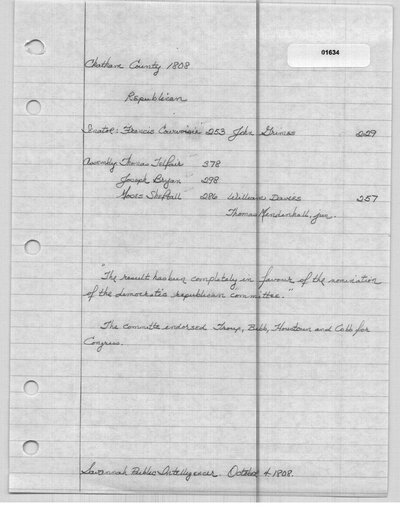 01634
Chatham County 1808
Republican
Senator: Francis Courvoisie 253 John Grimes 229
Assembly Thomas Telfair 378
Joseph Bryan 298
Moses Sheftall 286 William Davies 257
Thomas Mendenhall, jun.
"The result has been completely in favour of the nomination
of the democratic republican committee."
The committe endorsed Troup, Bibb, Houstoun and Cobb for
Congress.
Savannah Public Intelligencer. October 4 1808.